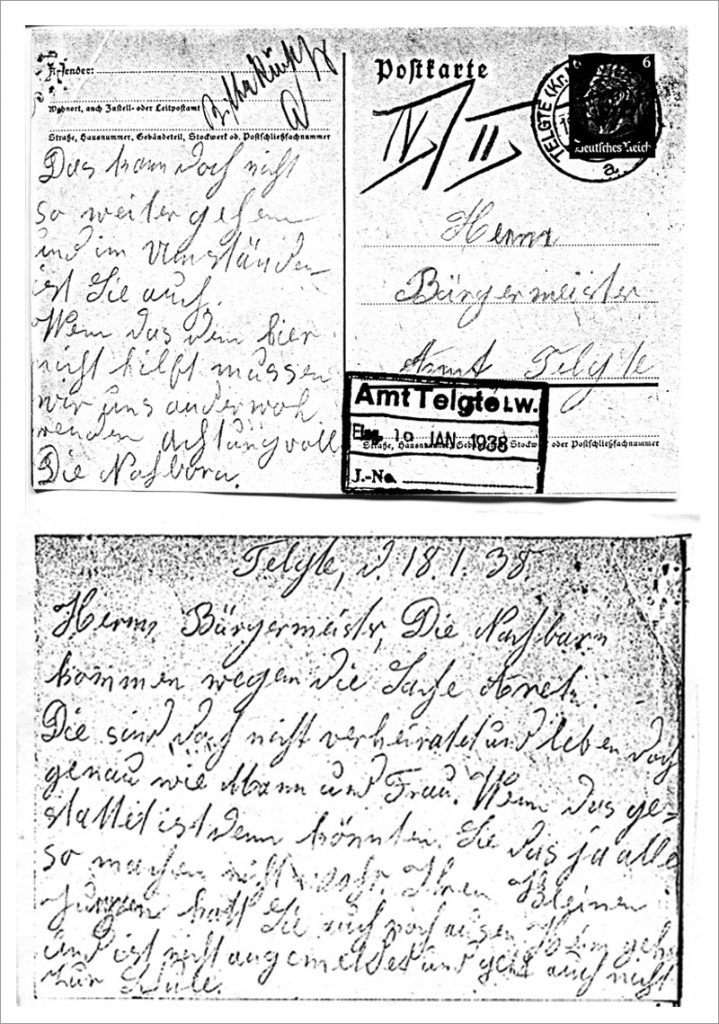 Absender:
Wohnort, auch Zustell- oder Leitpostamt
Straße, Hausnummer, Gebäudeteil, Stockwerk od. Postschließfachnummer
Das kann doch nicht
so weiter gehen
und im Umständen
ist Sie auch.
Wenn das dem hier
nicht hilft müssen
wir uns anderwoh
wenden Achtungvoll
Die Nachbarn.
Postkarte
IV/II
TELGTE (Kr.
a
6 6
Deutsches Reich
Herrn
Bürgermeister
Amt Telgte
Amt Telgte i.W.
Eing. 19 JAN 1938
Straße, Hausnummer, Stockw oder Postschließfachnummer
J.-No
Telgte, d. 18.1.38.
Herrn Bürgermeister, Die Nachbarn
kommen wegen die Sache
Die sind doch nicht verheiratet und leben doch
genau wie Mann und Frau. Wenn das ge=
stattet ist denn könnten Sie das ja alle
so machen nicht wahr. Ihren Kleinen
Jungen hatt Sie auch noch aus
und ist nicht angemeldet und geht auch nicht
zur Schule.